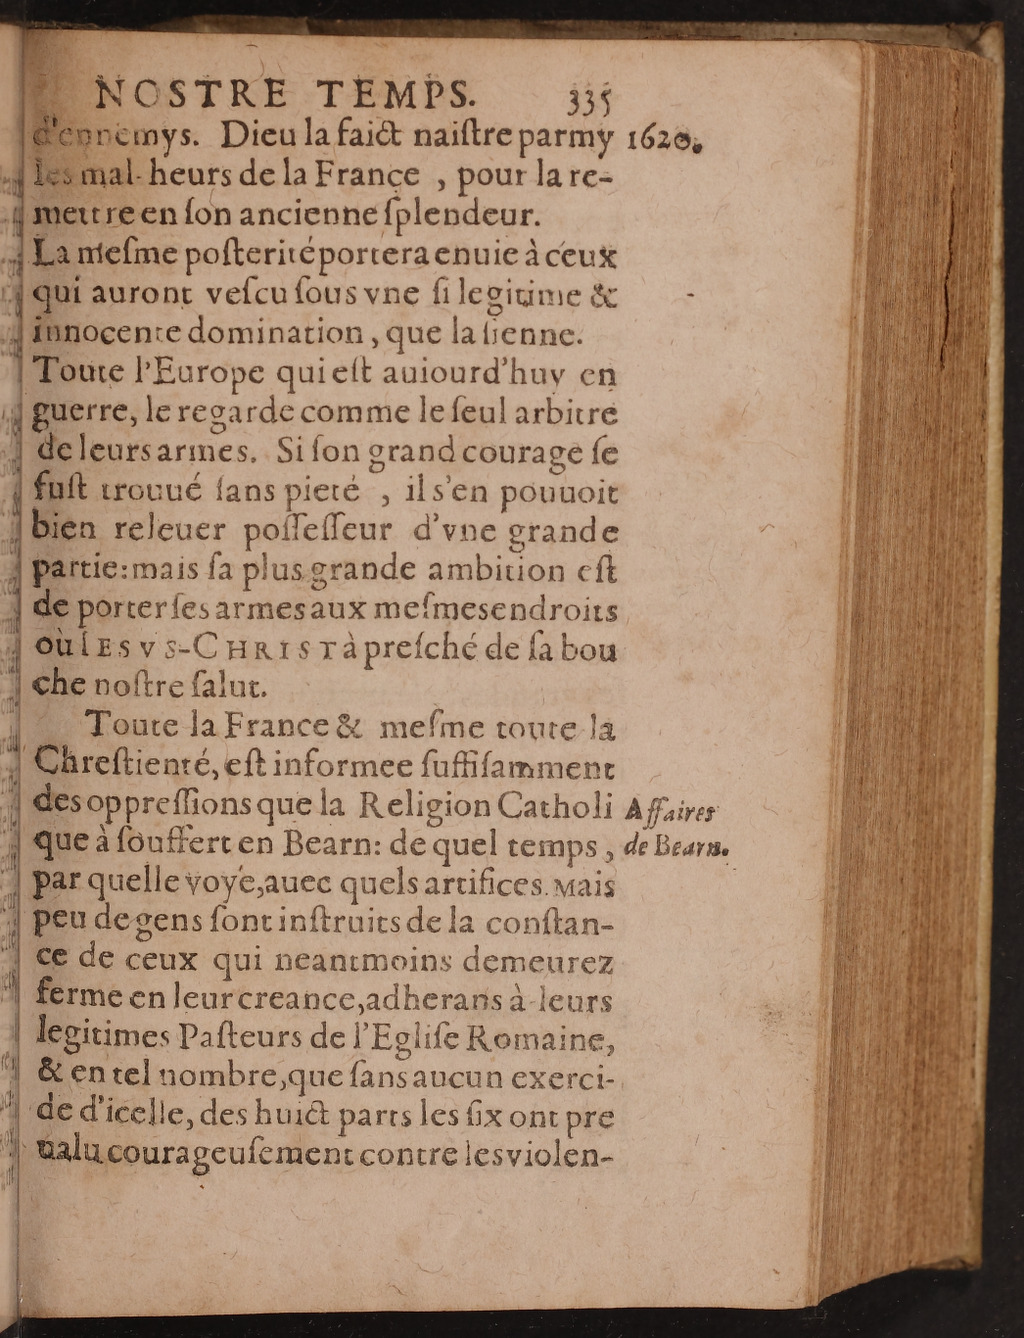 NOSTRE TEMPS. 335
d'ennemys. Dieu la faict naiſtre parmy 1620.
les mal-heurs de la France , pour la re-
mettre en ſon ancienne ſplendeur.
La meſme poſterité portera enuie à ceux
qui auront veſcu ſous vne ſi legitime &
innocente domination , que la ſienne.
Toute l'Europe qui eſt auiourd'huy en
guerre, le regarde comme le ſeul arbitre
de leurs armes. Si ſon grand courage ſe
fuſt trouué ſans pieté , il s'en pouuoit
bien releuer poſſeſſeur d'vne grande
partie: mais ſa plus grande ambition eſt
de porter ſes armes aux meſmes endroits
où IESVS-CHRIST à preſché de ſa bou
che noſtre ſalut.
Toute la France & meſme toute la
Chreſtienté, eſt informee ſuffiſamment
des oppreſſions que la Religion Catholi Affaires
que à ſouffert en Bearn: de quel temps , de Bearn.
par quelle voye, auec quels artifices. Mais
peu de gens ſont inſtruits de la conſtan-
ce de ceux qui neantmoins demeurez
ferme en leur creance, adherans à leurs
legitimes Paſteurs de l'Egliſe Romaine,
& en tel nombre, que ſans aucun exerci-
de d'icelle, des huict parts les ſix ont pre
ualu courageuſement contre les violen-